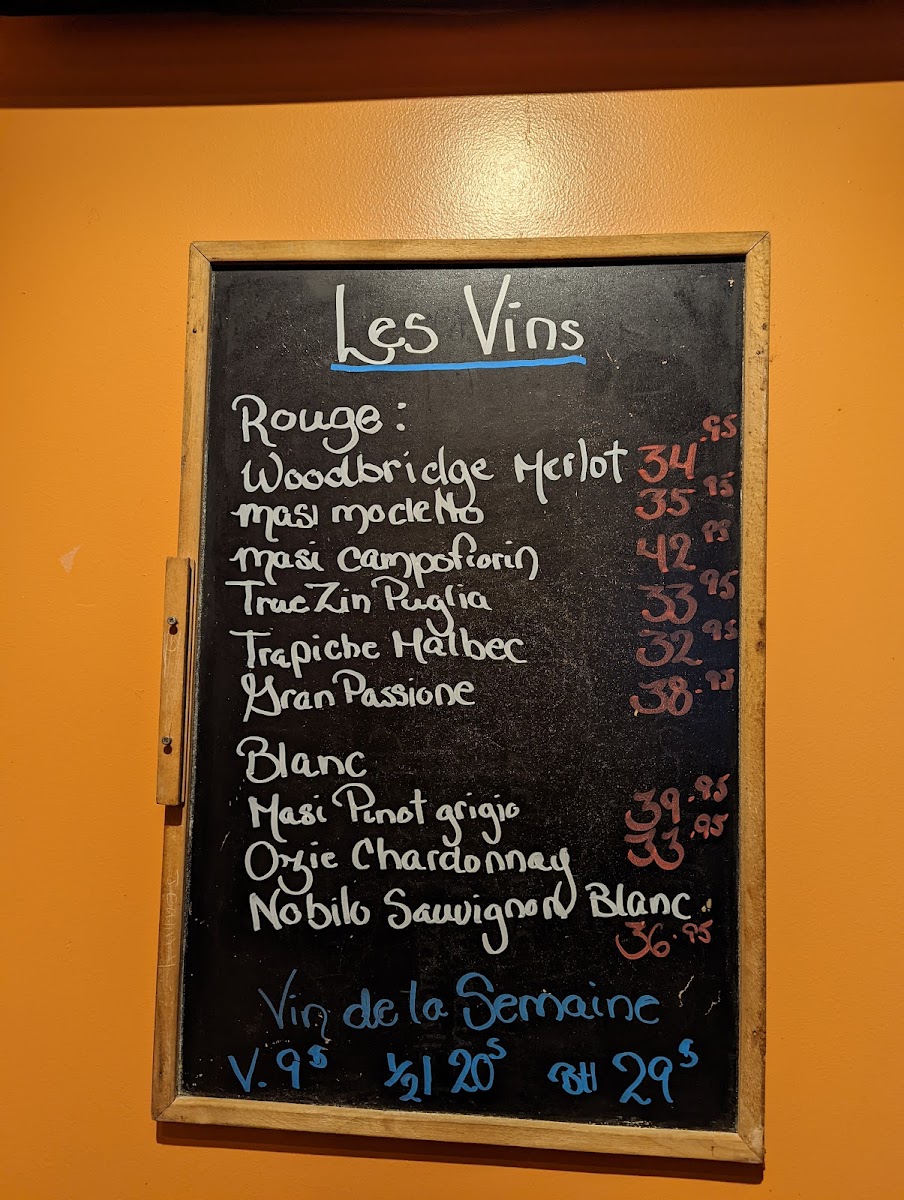 Les Vins
Rouge:
Woodbridge Merlot 34.95
Masi modello 35.95
Masi Campofiorin 42.95
True Zin Puglia 33.95
Trapiche Malbec 32.95
Gran Passione 38.95
Blanc
Masi Pinot grigio 39.95
Ozie Chardonnay 33.95
Nobilo Sauvignon Blanc
36.95
Vin de la Semaine
V. 9 5 1/2 l 20 5 Btl 29 5